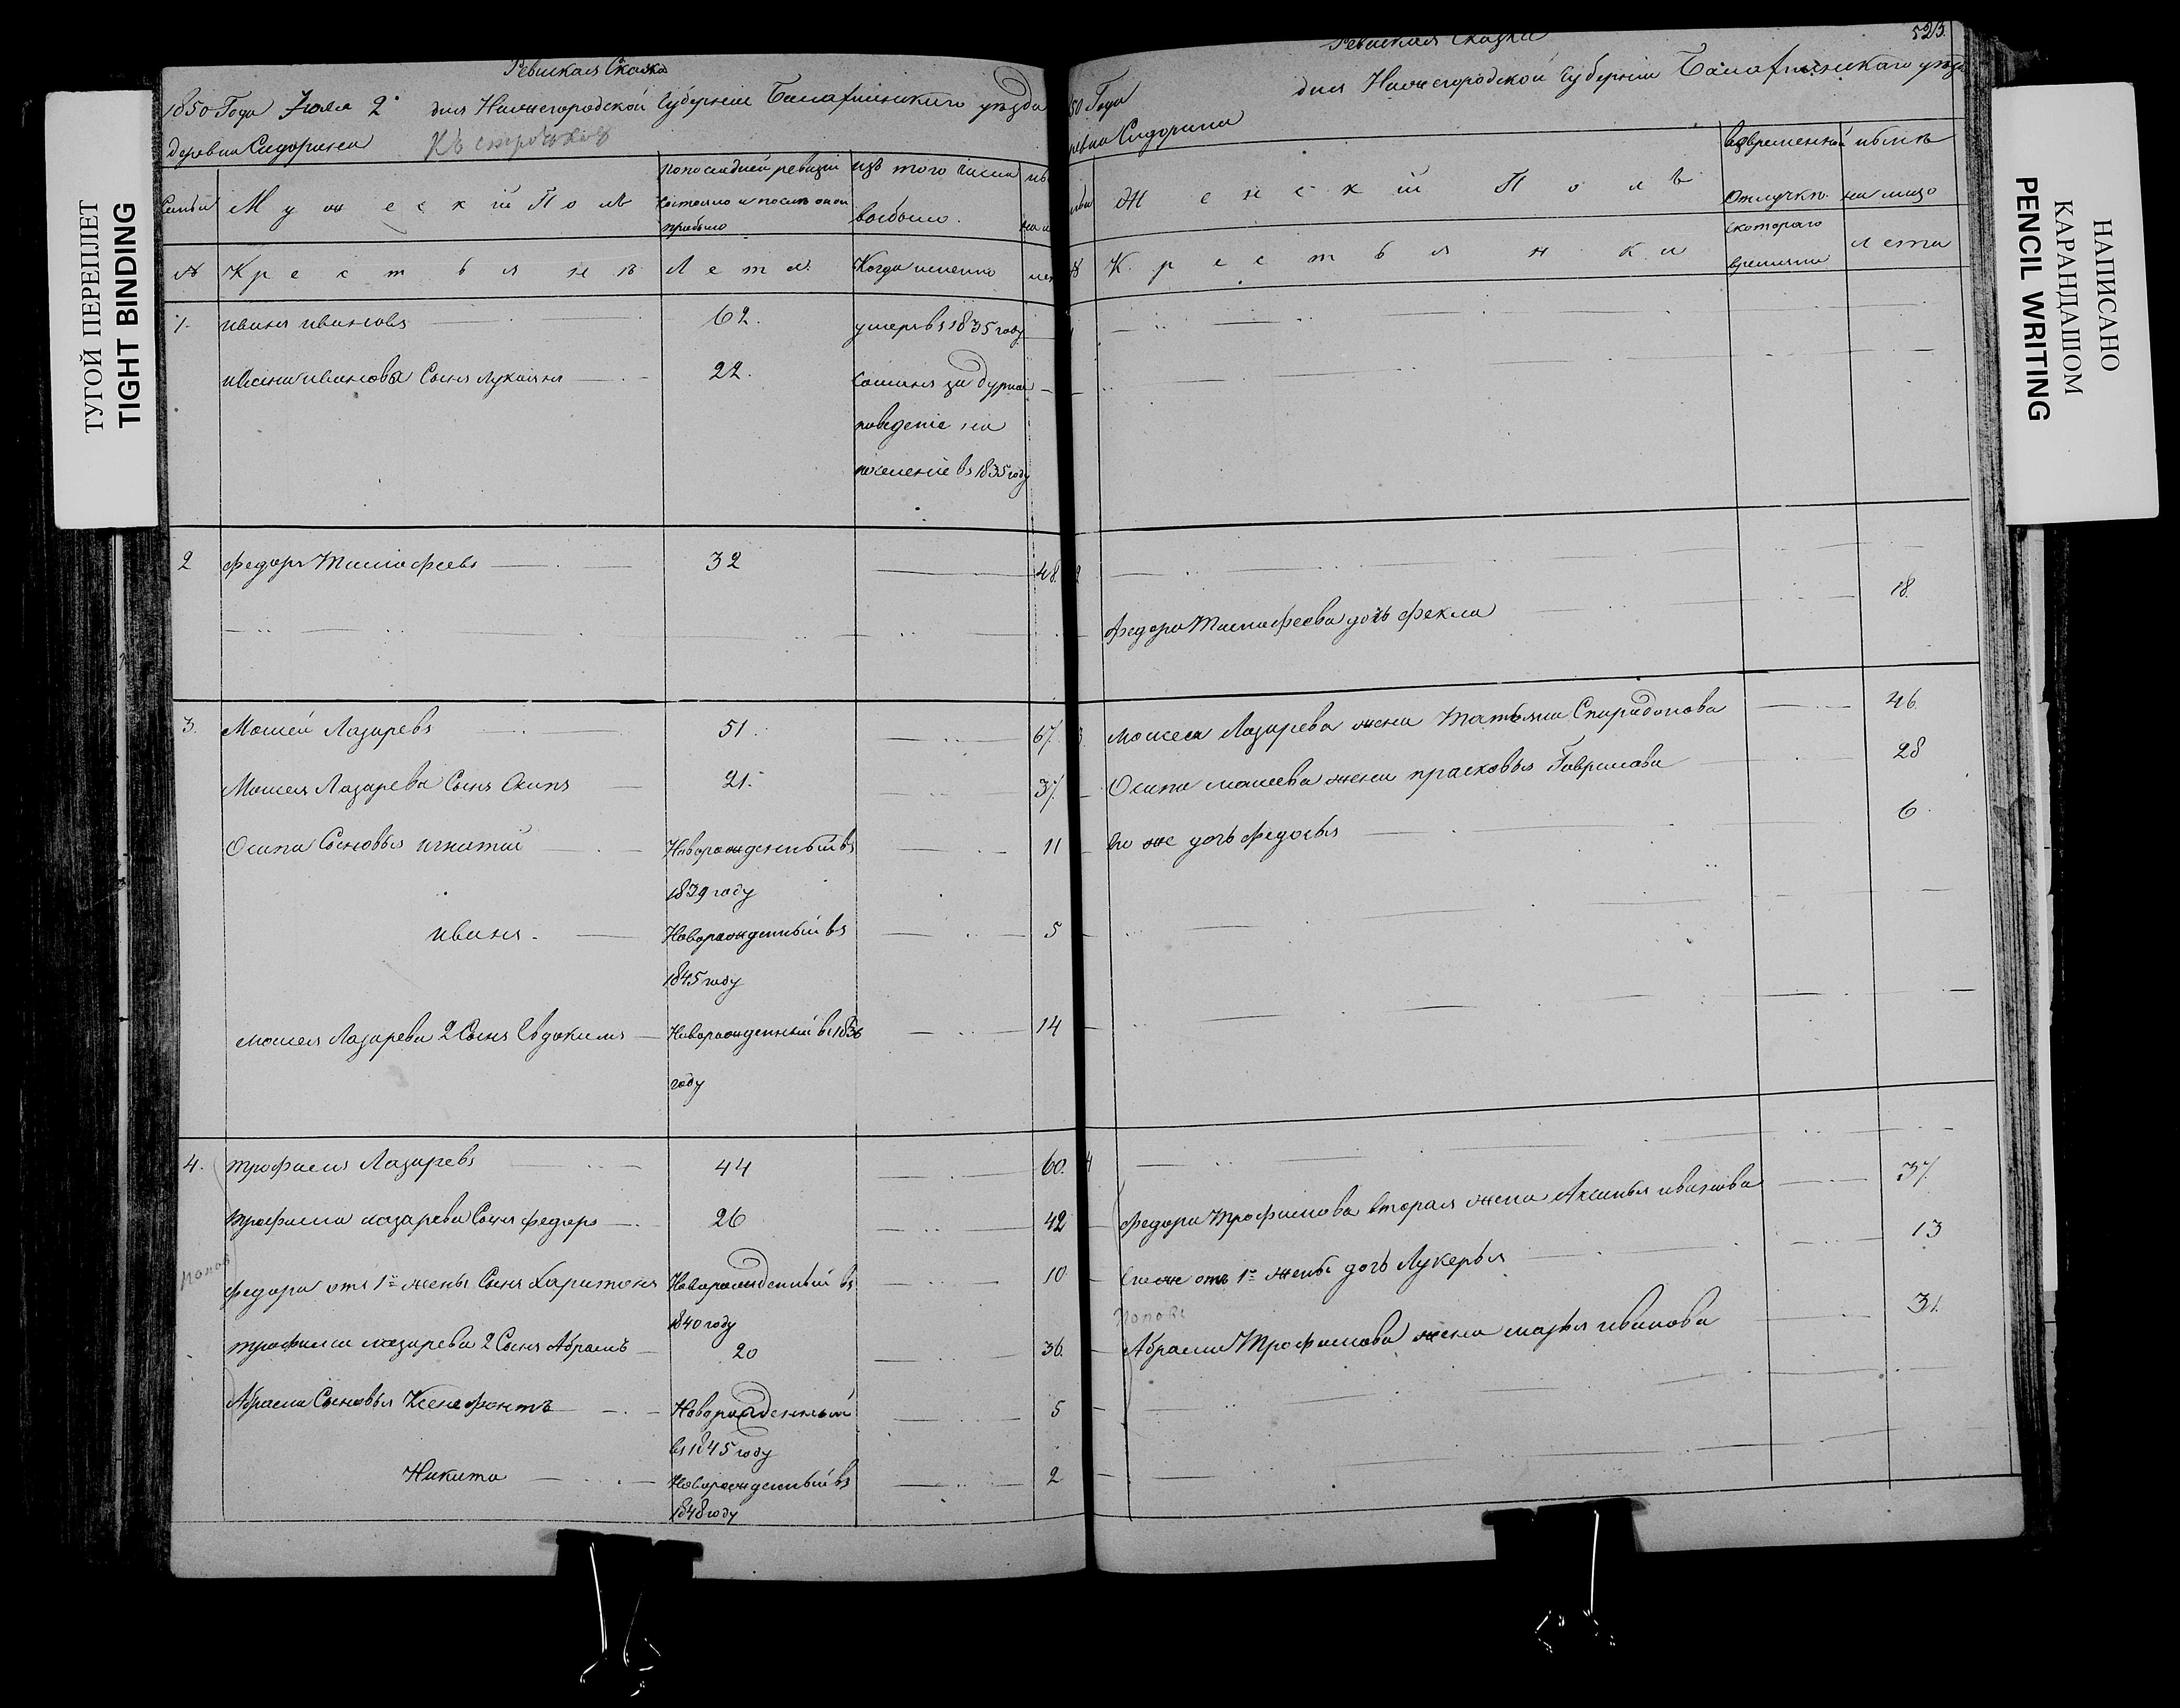 ТУГОЙ ПЕРЕПЛЕТ
TIGHT BINDING
Ревиская Сказка
1850 Года Июля 2 дня Нижегородской Губерніи Балахнинскаго уѣзда
деревни Сидорина
Семьи
Мужеский Полъ
По последней ревизіи состояло и после оной прибыло
изъ того числа выбыло.
№
Крестьянъ
Лета.
Когда именно
1. Иванъ Ивановъ 62. умеръ въ 1835 году
Ивана Иванова Сынъ Лукьянъ 22. Сосланъ за дурное
поведеніе на
поселеніе въ 1835 году
2 Федоръ Тимофеевъ 32 48.
3. Мосей Лазаревъ 51. 67.
Мосея Лазарева Сынъ Осипъ 21. 37.
Осипа Сыновья Игнатий Новорожденный въ 11
1839 году
Иванъ. Новорожденный въ 5
1845 году
Мосея Лазарева 2 Сынъ Евдокимъ Новорожденный въ 1836 14
году
4. Трофимъ Лазаревъ 44 60.
Трофима Лазарева Сынъ Федоръ 26 42
Федора отъ 1й жены Сынъ Харитонъ Новорожденный въ 10
1840 году
Трофима Лазарева 2 Сынъ Абрамъ 20 36.
Абрама Сыновья Ксенофонтъ Новорожденный 5
въ 1845 году
Никита Новорожденный въ 2
1848 году
Ревиская Сказка
525.
50 Года дня Нижегородской Губерніи Балахнинскаго уѣзда
Сидорина
Женский Полъ
Во временной отлучкѣ.
на лицо
№
Крестьянки
с котораго времяни
лета
2
Федора Тимофеева дочь Фекла 18.
3. Мосея Лазарева жена Татьяна Спиридонова 46.
Осипа Мосеева жена Прасковья Гаврилова 28
Его же дочь Федосья 6.
4
Федора Трофимова вторая жена Аксинья Иванова 37.
Его же отъ 1й жены дочь Лукерья 13
Абрама Трофимова жена Марья Иванова 31.
НАПИСАНО
КАРАНДАШОМ
PENCIL WRITING